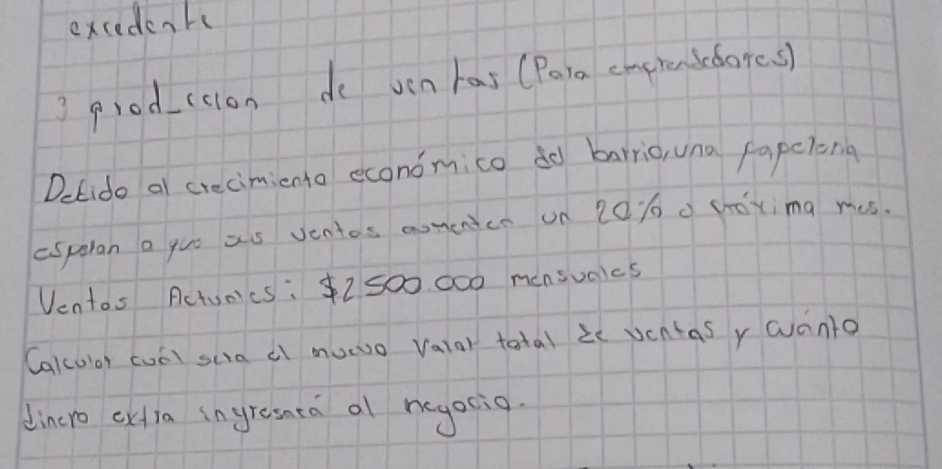 excedente
3 prod_ccion de ventas (Para emprendedores)
Debido al crecimiento económico del barrio, una papelería
esperan a que las ventas aumenten un 20% próxima mes.
Ventas Actuales: $2 500 000 mensuales
Calcular cuál sera el nuevo valor total de ventas y cuánto
dinero extra ingresará al negocio.